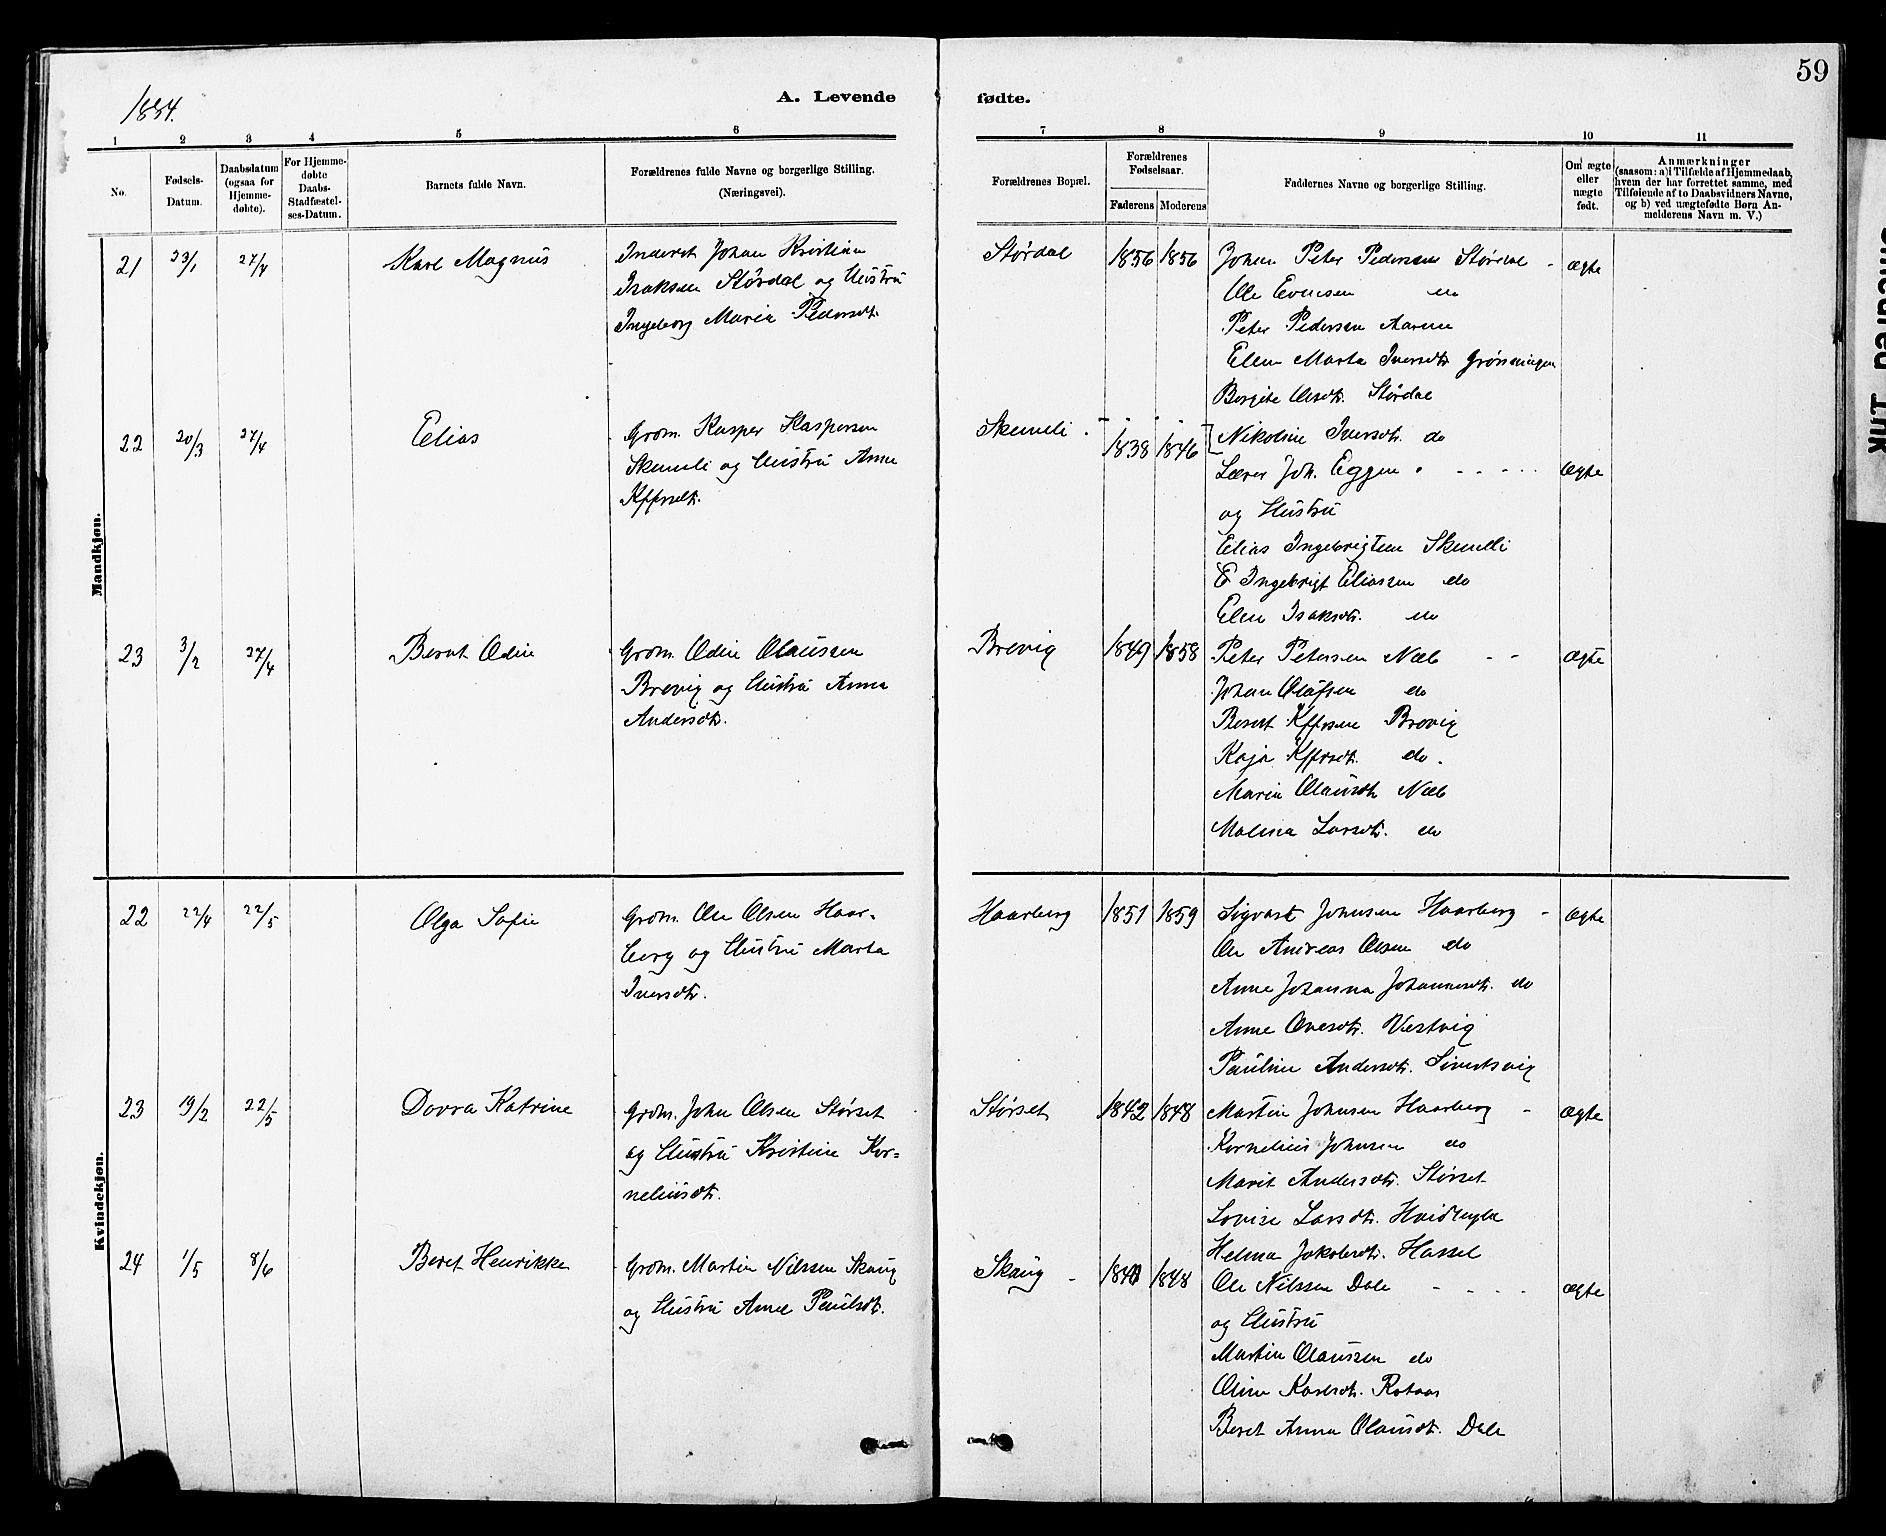 59
1884.
A. Levende fødte.
1 2 3 4 5 6 7 8 9 10 11
No.
Fødsels-
Datum.
Daabsdatum
(ogsaa for
Hjemme-
døbte).
For Hjemme-
døbte
Daabs-
Stadfæstel-
ses-Datum.
Barnets fulde Navn.
Forældrenes fulde Navne og borgerlige Stilling.
(Næringsvei).
Forældrenes Bopæl.
Forældrenes
Fødselsaar.
Faderens Moderens
Faddernes Navne og borgerlige Stilling.
Om ægte
eller
uægte
født.
Anmærkninger
(saasom: a) i Tilfælde af Hjemmedaab,
hvem der har forrettet samme, med
Tilføiende af to Daabsvidners Navne,
og b) ved uægtefødte Børn An-
melderens Navn m. V.)
Mandkjøn.
21 23/1 27/4 Karl Magnus
Inderst Johan Kristian
Isaksen Størdal og Hustru
Ingeborg Maria Pedersdt.
Størdal 1856 1856
Johan Peter Pedersen Størdal - ægte
Ole Evensen do
Peter Pedersen Aarnes
Ellen Marta Iversdt. Grønningen
Bergite Olsdt. Størdal
22 20/3 27/4 Elias
Grdm. Kasper Kaspersen
Skemeli og Hustru Anne
Kffrsdt.
Skemeli. 1838 1846
Nikoline Iversdt. do
Lærer Joh. Eggen - - - - ægte
og Hustru
Elias Ingebrigtsen Skemeli
E Ingebrigt Eliassen do
Elen Isaksdt. do
23 3/2 27/4 Bernt Odin
Grdm. Odin Olaussen
Brevig og Hustru Anna
Andersdt.
Brevig 1849 1858
Peter Petersen Næb - - ægte
Johan Olafsen do
Bernt Kffrsen Brevig
Kaja Kffrsdt. do.
Marin Olausdt. Næb
Malena Larsdt. do
Kvindekjøn.
22 22/4 22/5 Olga Sofie
Grdm. Ole Olsen Haar-
berg og Hustru Marta
Iversdt.
Haarberg 1851 1859
Sigvart Johnsen Haarberg - ægte
Ole Andreas Olsen do
Anne Johanna Johannesdt. do
Anne Ovesdt. Vestvig
Pauline Andersdt. Sivertsvig
23 19/2 22/5 Dorra Katrine
Grdm. John Olsen Størset
og Hustru Kristine Kor-
neliusdt.
Størset 1842 1848
Martin Johnsen Haarberg - ægte
Kornelius Johnsen do
Marit Andersdt. Størset
Lovise Larsdt.
Helma Jakobsdt. Hassel
24 1/5 8/6 Beret Henrikke
Grdm. Martin Nilssen Skaug
og Hustru Anne Paulsdt.
Skaug - 1848
Ole Nilssen Dale - - - - ægte
og Hustru
Martin Olaussen do
Oline Karlsdt. Rotaas
Beret Anna Olausdt. Dale